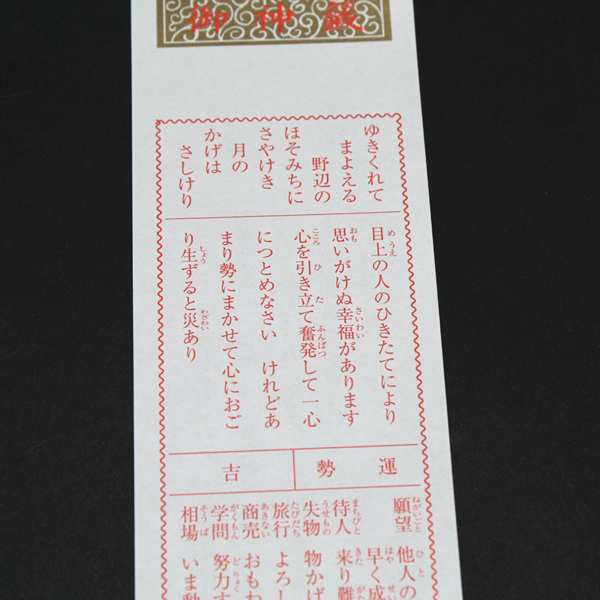 御神籤
ゆきくれて
まよえる
野辺の
ほそみちに
さやけき
月の
かげは
さしけり
目上の人のひきたてにより
思いがけぬ幸福があります
心を引き立て奮発して一心
につとめなさい　けれどあ
まり勢にまかせて心におご
り生ずると災あり
運勢　吉
願望　他人の
早く成
待人　来り難
失物　物かげ
旅行　よろし
商売　おもわ
学問　努力す
相場　いま動